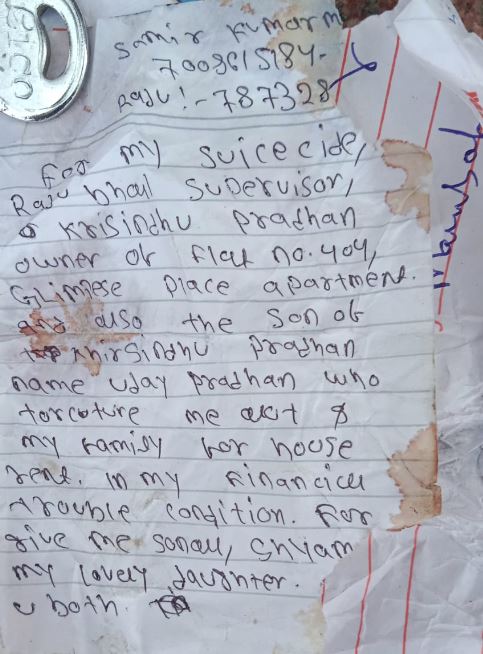 Samir Kumar m
7009615184-
Raju :- 787328
For my suicecide,
Raju bhai supervisor,
Krisindhu pradhan
owner of flat no. 404,
Glimese place apartment.
also the son of
Khirsindhu pradhan
name uday pradhan who
torcuture me &
my family for house
rent. in my financial
trouble condition. For
give me sonali, shyam
my lovely daughter.
u both.